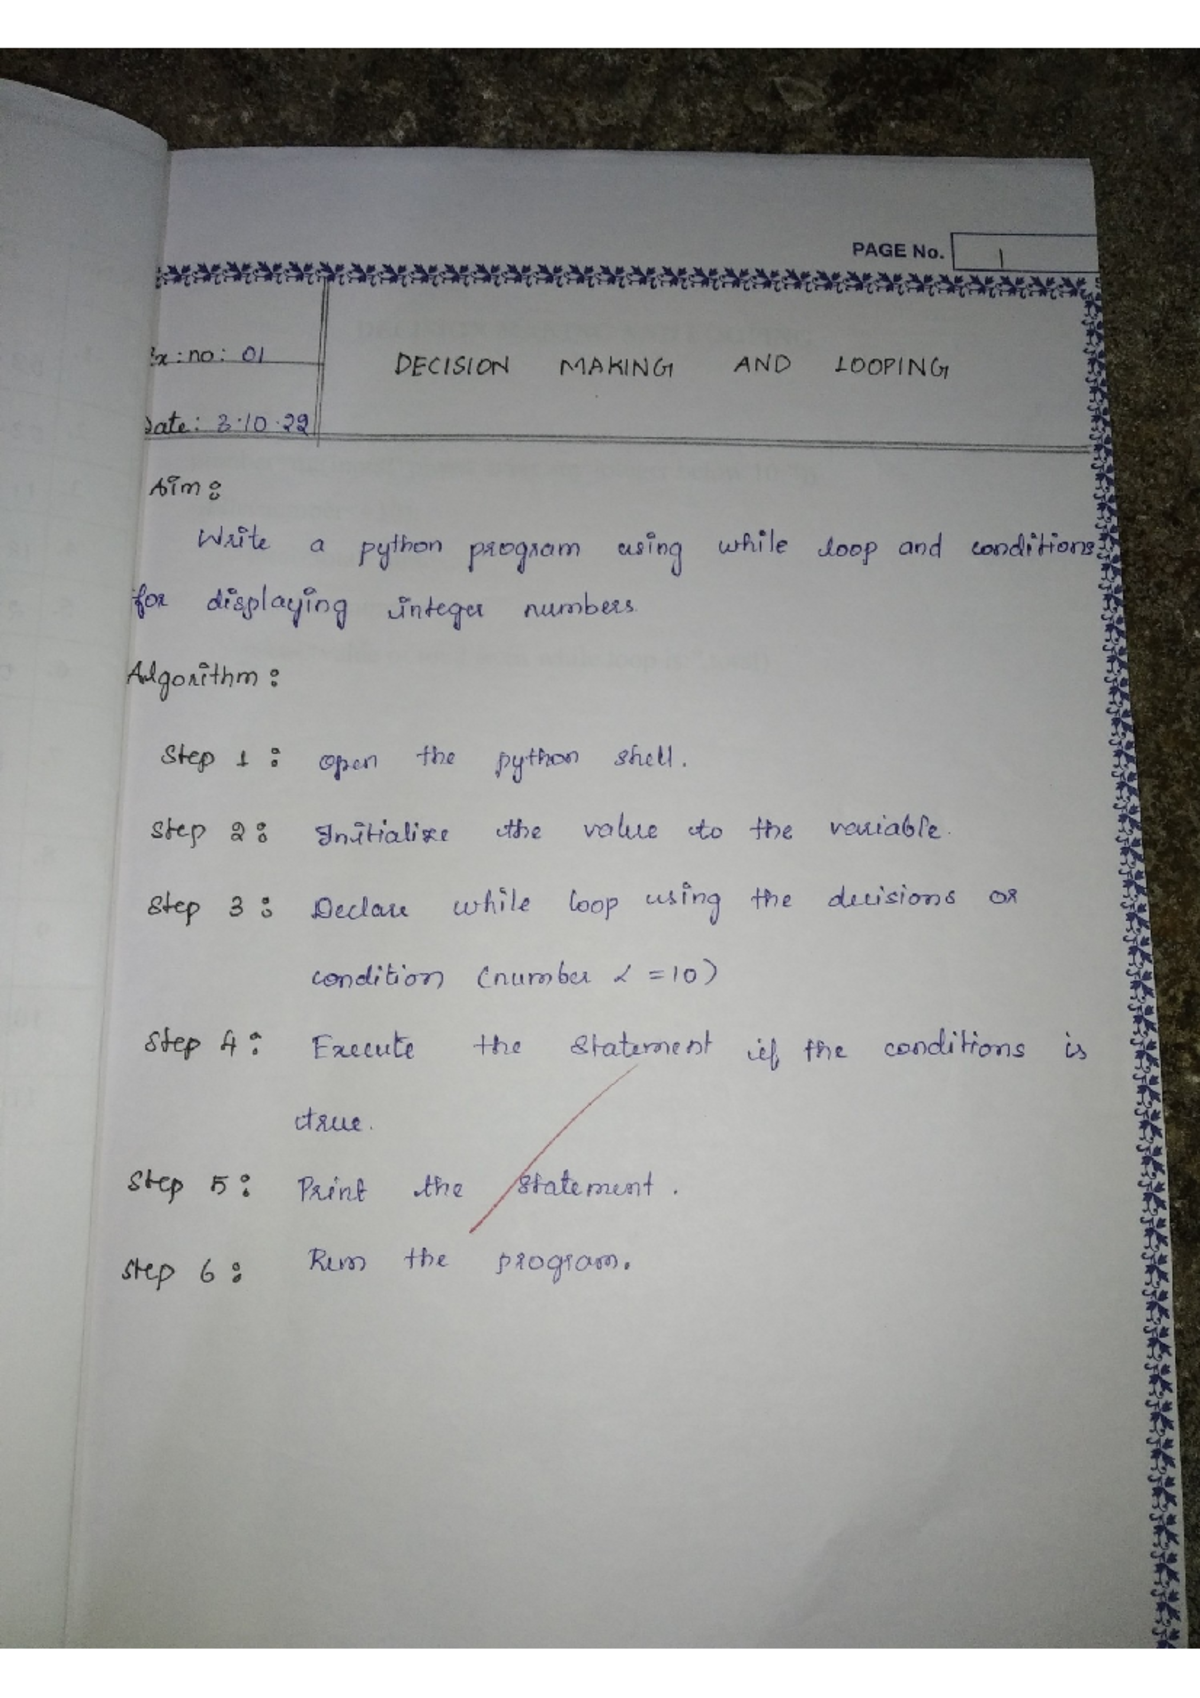 PAGE No. 1
Ex: no: 01
DECISION MAKING AND LOOPING
Date: 3.10.22
Aim:
Write a python program using while loop and conditions
for displaying integer numbers.
Algorithm:
Step 1: open the python shell.
Step 2: Initialize the value to the variable.
Step 3: Declare while loop using the decisions or
condition (number < =10)
Step 4: Execute the statement if the conditions is
true.
Step 5: Print the statement.
Step 6: Run the program.